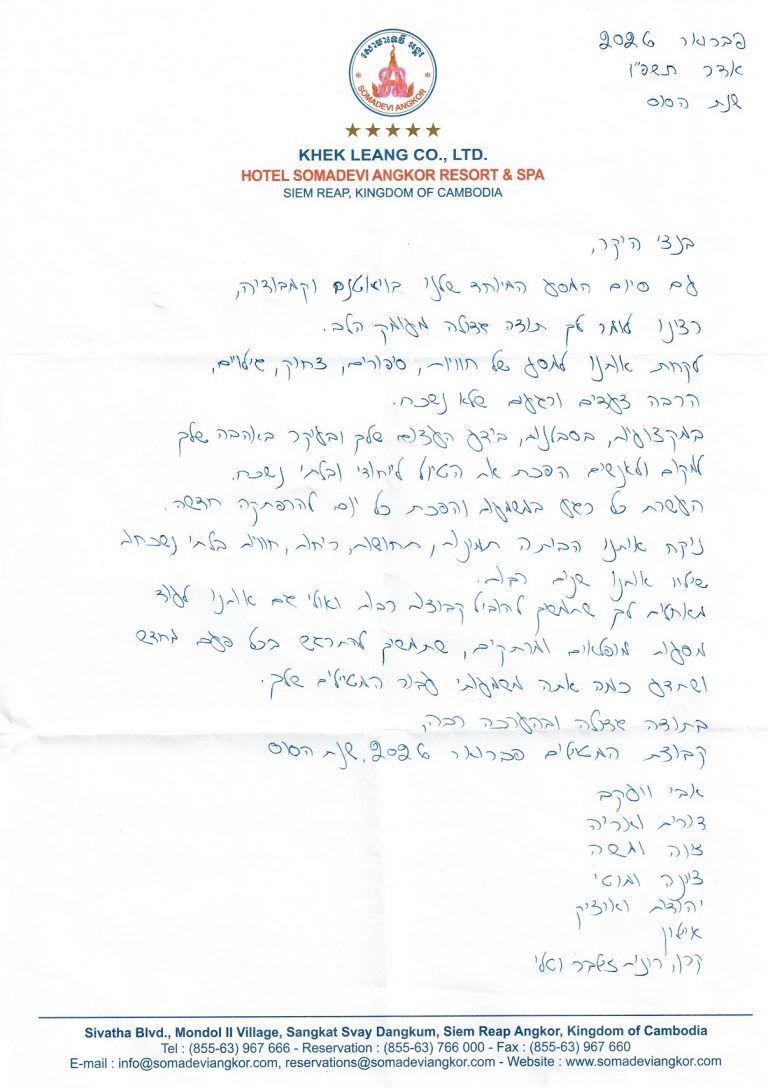 פברואר 2026
אדר תשפ"ו
שנת הסוס
សោមាទេវី អង្គរ
SOMADEVI ANGKOR
KHEK LEANG CO., LTD.
HOTEL SOMADEVI ANGKOR RESORT & SPA
SIEM REAP, KINGDOM OF CAMBODIA
בנצי היקר,
עם סיום המסע המיוחד שלנו בויאטנם וקמבודיה,
רצינו לומר לך תודה גדולה מעומק הלב.
לקחת אותנו למסע של חוויות, סיפורים, צחוק, גילויים,
הרבה צעדים ורגעים שלא נשכח.
במקצועיות, בסבלנות, בידע העצום שלך ובעיקר באהבה שלך
למקום ולאנשים הפכת את הטיול לייחודי ובלתי נשכח.
העשרת כל רגע במשמעות והפכת כל יום להרפתקה חדשה.
ניקח איתנו הביתה תמונות, תחושות, ריחות, חוויות בלתי נשכחות
שילוו אותנו שנים רבות.
מאחלים לך שתמשיך להוביל קבוצות רבות ואולי גם אותנו לעוד
מסעות מופלאים ומרתקים, שתמשיך להתרגש בכל פעם מחדש
ושתדע כמה אתה משמעותי עבור המטיילים שלך.
בתודה גדולה ובהערכה רבה,
קבוצת המטיילים פברואר 2026, שנת הסוס
אבי ויעקב
דורית ואריה
ציונה ומשה
צינה ומוטי
יהודית ואיציק
אילון
קרן, רונית זילבר ואלי
Sivatha Blvd., Mondol II Village, Sangkat Svay Dangkum, Siem Reap Angkor, Kingdom of Cambodia
Tel : (855-63) 967 666 - Reservation : (855-63) 766 000 - Fax : (855-63) 967 660
E-mail : info@somadeviangkor.com, reservations@somadeviangkor.com - Website : www.somadeviangkor.com